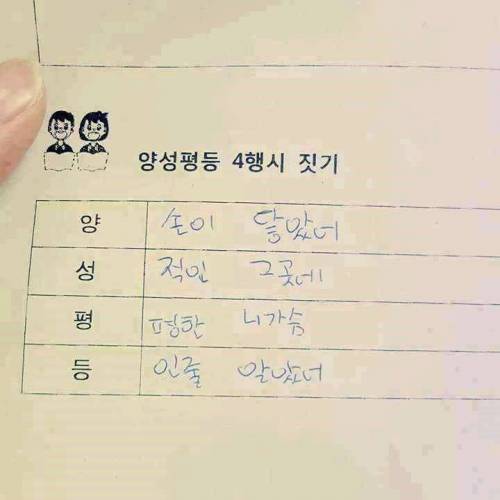 양성평등 4행시 짓기
양 손이 닿았어
성 적인 그곳에
평 평한 니가슴
등 인줄 알았어